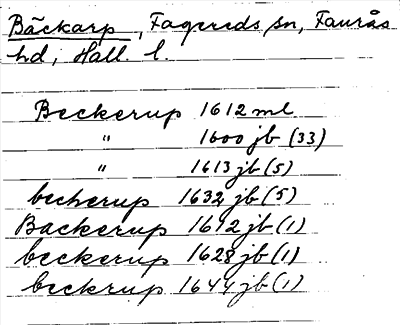 Bäckarp, Fagereds sn, Faurås
hd, Hall. l.
Beckerup 1612 ml
" 1600 jb (33)
" 1613 jb (5)
becherup 1632 jb (5)
Backerup 1612 jb (1)
beckerup 1628 jb (1)
beckrup 1644 jb (1)